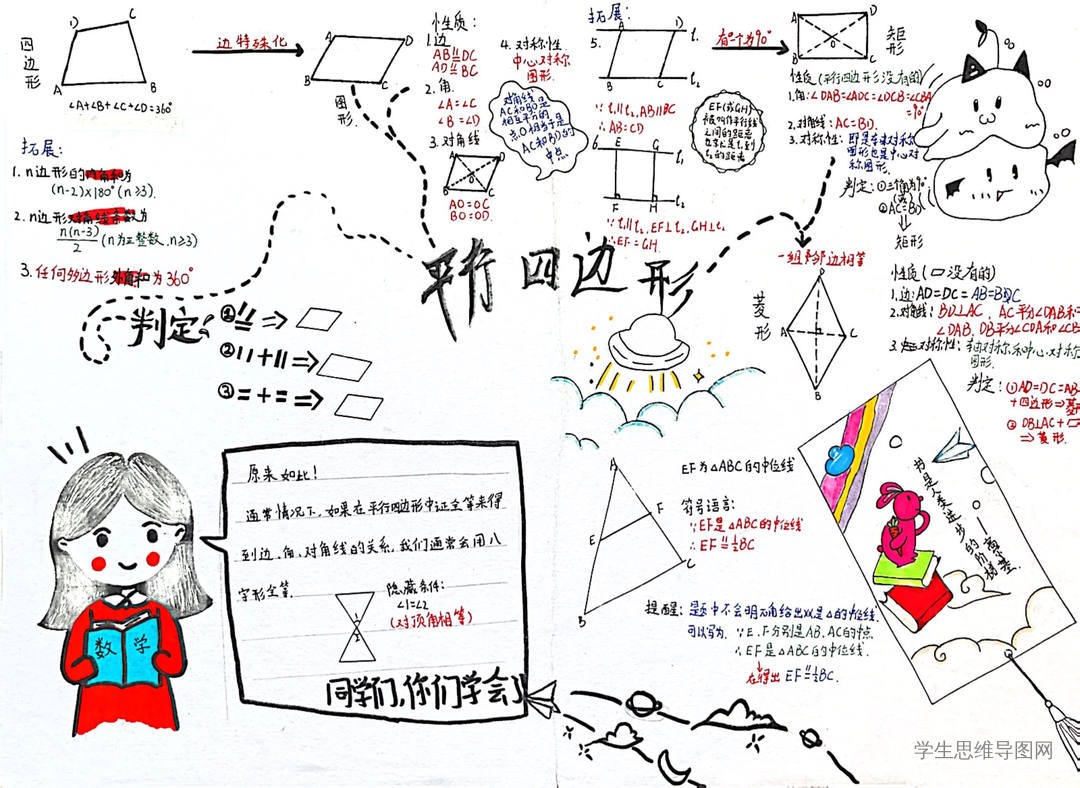 四边形
D
C
A
B
∠A+∠B+∠C+∠D=360°
边特殊化
A
D
B
C
图形.
性质:
1.边
AB∥DC
AD∥BC
2.角.
∠A=∠C
∠B=∠D
3.对角线
A
D
O
B
C
AO=OC
BO=OD.
4.对称性.
中心对称
图形.
对角线
AC和BD是
相互平分的
点O相当于是
AC和BD的
中点
拓展:
5.
A
D
l₁
B
C
l₂
∵l₁∥l₂,AB∥BC
∴AB=CD
6.
E
G
l₁
F
H
l₂
∵l₁∥l₂,EF⊥l₂,GH⊥l₂
∴EF=GH.
EF(或GH)
被叫作平行线
之间的距离
也就是l₁到
l₂的距离
有一个为90°
A
D
O
B
C
矩形
性质(平行四边形没有的)
1.角:∠DAB=∠ADC=∠DCB=∠CBA
=90°
2.对角线:AC=BD.
3.对称性:即是轴对称
图形也是中心对
称图形.
判定:①三个角为90°
(或)
②AC=BD
⇓
矩形
拓展:
1.n边形的内角和为
(n-2)×180°(n≥3).
2.n边形对角线条数为
n(n-3)/2(n为正整数,n≥3)
3.任何多边形外角和为360°
平行四边形
判定
①
②
③
一组邻边相等
菱形
D
A
C
B
性质(▱没有的)
1.边:AD=DC=AB=BC
2.对角线:BD⊥AC,AC平分∠DAB和
∠DAB,DB平分∠CDA和∠CB
3.对称性:轴对称和中心对称
图形.
判定:①AD=DC=AB
+四边形⇒菱
②DB⊥AC+▱
⇒菱形.
原来如此!
通常情况下,如果在平行四边形中证全等来得
到边、角、对角线的关系,我们通常会用八
字形全等.
1
2
隐藏条件:
∠1=∠2
(对顶角相等)
同学们,你们学会了
数学
A
F
E
C
B
EF为△ABC的中位线
符号语言:
∵EF是△ABC的中位线
∴EF∥½BC
提醒:题中不会明确给出××是△的中位线.
可以写为.∵E.F分别是AB.AC的中点.
∴EF是△ABC的中位线.
在得出EF∥½BC.
书是人类进步的阶梯
—高尔基.
学生思维导图网